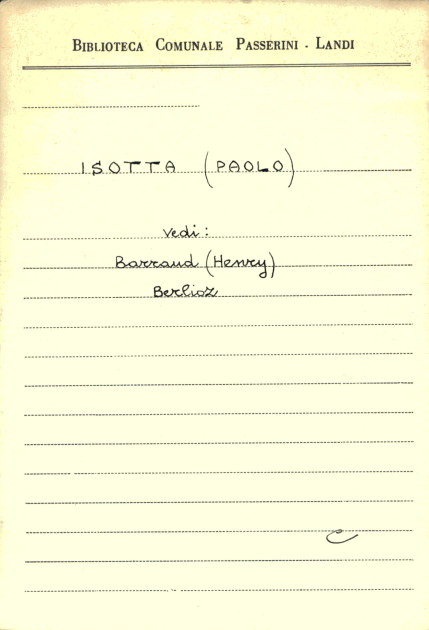 BIBLIOTECA COMUNALE PASSERINI - LANDI
ISOTTA (PAOLO)
vedi:
Barraud (Henry)
Berlioz
C